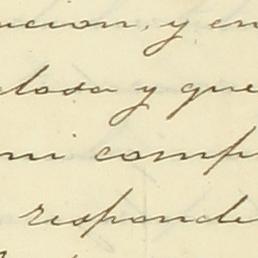 ucion, y en
dosa y que
mi comp
responde